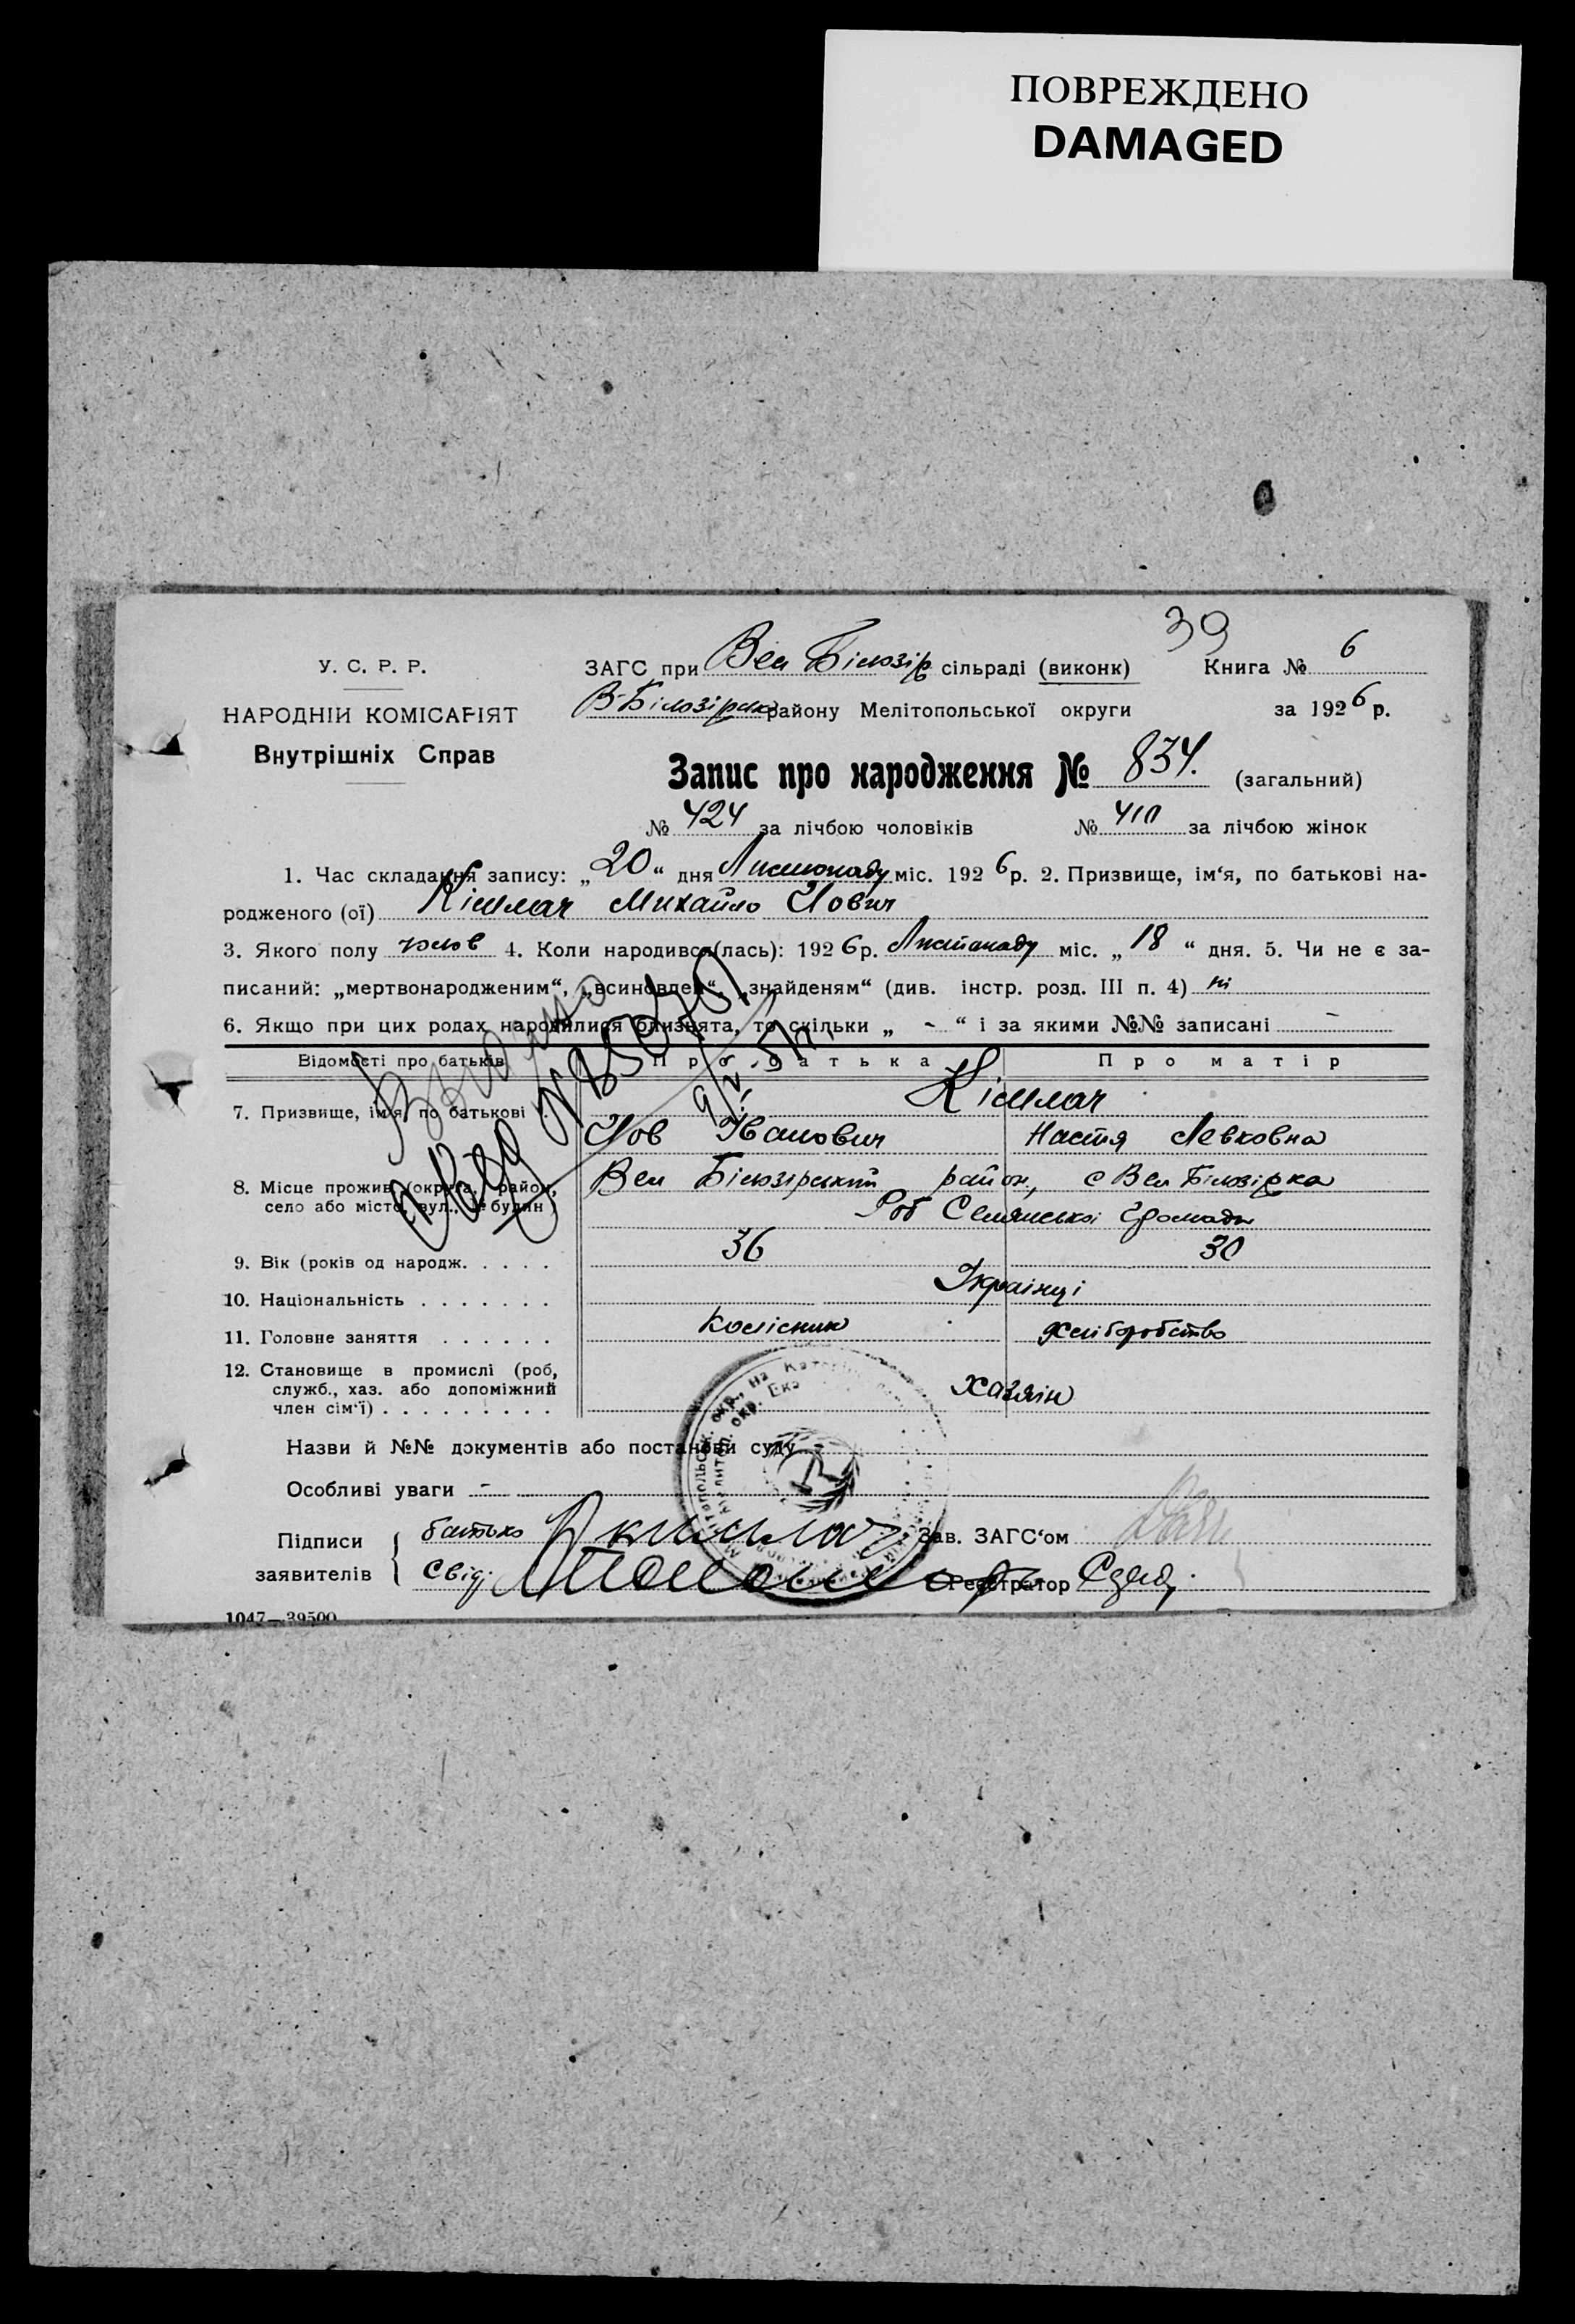 ПОВРЕЖДЕНО
DAMAGED
39
У. С. Р. Р.
ЗАГС при Вел Білозір сільраді (виконк) Книга № 6
НАРОДНІЙ КОМІСАРІЯТ
В-Білозірськ району Мелітопольської округи за 1926 р.
Внутрішніх Справ
Запис про народження № 834. (загальний)
№ 424 за лічбою чоловіків № 410 за лічбою жінок
1. Час складання запису: „20“ дня Листопаду міс. 1926 р. 2. Призвище, ім‘я, по батькові на-
родженого (ої) Кішлач Михайло Йович
3. Якого полу чолов 4. Коли народився(лась): 1926 р. Листопаду міс. „18“ дня. 5. Чи не є за-
писаний: „мертвонародженим“, „всиновлен“, „знайденям“ (див. інстр. розд. III п. 4) ні
6. Якщо при цих родах народилися близнята, то скільки „ - “ і за якими №№ записані -
Відомості про батьків Про батька Про матір
7. Призвище, ім‘я, по батькові Кішлач
Йов Іванович Настя Левковна
8. Місце прожив. (округа, район, Вел Білозірський район, с Вел Білозірка
село або місто, вул., № будин) Роб Селянської Громади
9. Вік (років од народж. . . . . 36 30
10. Національність . . . . . . . Українці
11. Головне заняття . . . . . . Колісник хліборобство
12. Становище в промислі (роб,
служб., хаз. або допоміжний хазяін
член сім‘ї) . . . . . . . . .
Назви й №№ документів або постанови суду -
Особливі уваги -
Підписи батько Зав. ЗАГС‘ом
заявителів Свід. Реєстратор
1047—39500